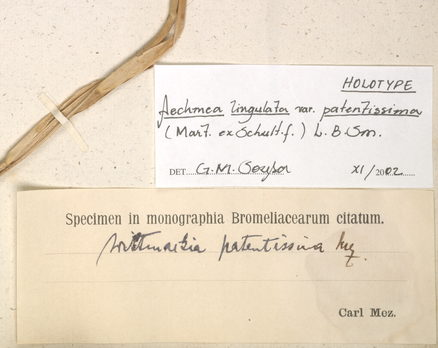 HOLOTYPE
Aechmea lingulata var. patentissima
(Mart. ex Schult.f.) L.B.Sm.
DET. G.M. Sousa XI/2002
Specimen in monographia Bromeliacearum citatum.
Wittmackia patentissima Mez
Carl Mez.